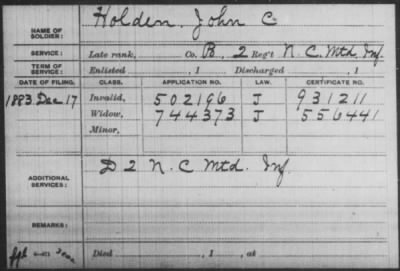 NAME OF SOLDIER: Holden, John C
SERVICE: Late rank, Co. B, 2 Reg't N. C. Mtd. Inf.
TERM OF SERVICE: Enlisted , 1 Discharged , 1
DATE OF FILING. CLASS. APPLICATION NO. LAW. CERTIFICATE NO.
1883 Dec 17 Invalid, 502196 J 931211
Widow, 744373 J 556441
Minor,
ADDITIONAL SERVICES: D 2 N. C Mtd. Inf
REMARKS:
Died , 1 , at